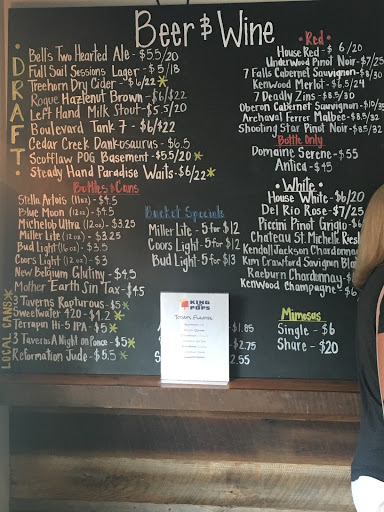 Beer & Wine
DRAFT
Bells Two Hearted Ale - $5.5/20
Full Sail Sessions Lager - $5/18
Treehorn Dry Cider - $6/22
Rogue Hazlenut Brown - $6/$22
Left Hand Milk Stout - $5.5/20
Boulevard Tank 7 - $6/$22
Cedar Creek Dankosaurus - $6.5
Scofflaw POG Basement - $5.5/20
Steady Hand Paradise Waits - $6/22
Bottles & Cans
Stella Artois (11oz) - $4.5
Blue Moon (12oz) - $4.5
Michelob Ultra (12oz) - $3.25
Miller Lite (12oz) - $3.25
Bud Light (16oz) - $3.5
Coors Light (12oz) $3
New Belgium Glutiny - $4.5
Mother Earth Sin Tax - $4.5
LOCAL CANS
3 Taverns Rapturous - $5
Sweetwater 420 - $4.2
Terrapin Hi-5 IPA - $5
3 Taverns A Night on Ponce - $5
Reformation Jude - $5.5
Bucket Specials
Miller Lite - 5 for $12
Coors Light - 5 for $12
Bud Light - 5 for $13
KING OF POPS
TODAY'S FLAVORS
$1.85
$2.75
$5.5
Red
House Red - $6/20
Underwood Pinot Noir - $7/25
7 Falls Cabernet Sauvignon - $8/30
Kenwood Merlot - $6.5/24
7 Deadly Zins - $8.5/30
Oberon Cabernet Sauvignon - $10/35
Archaval Ferrer Malbec - $8.5/32
Shooting Star Pinot Noir - $8.5/32
Bottle Only
Domaine Serene - $55
Antica - $45
White
House White - $6/20
Del Rio Rose - $7/25
Piccini Pinot Grigio - $6/
Chateau St. Michelle Riesl
Kendall Jackson Chardonna
Kim Crawford Sauvignon Blan
Raeburn Chardonnay -
Kenwood Champagne - $6
Mimosas
Single - $6
Share - $20